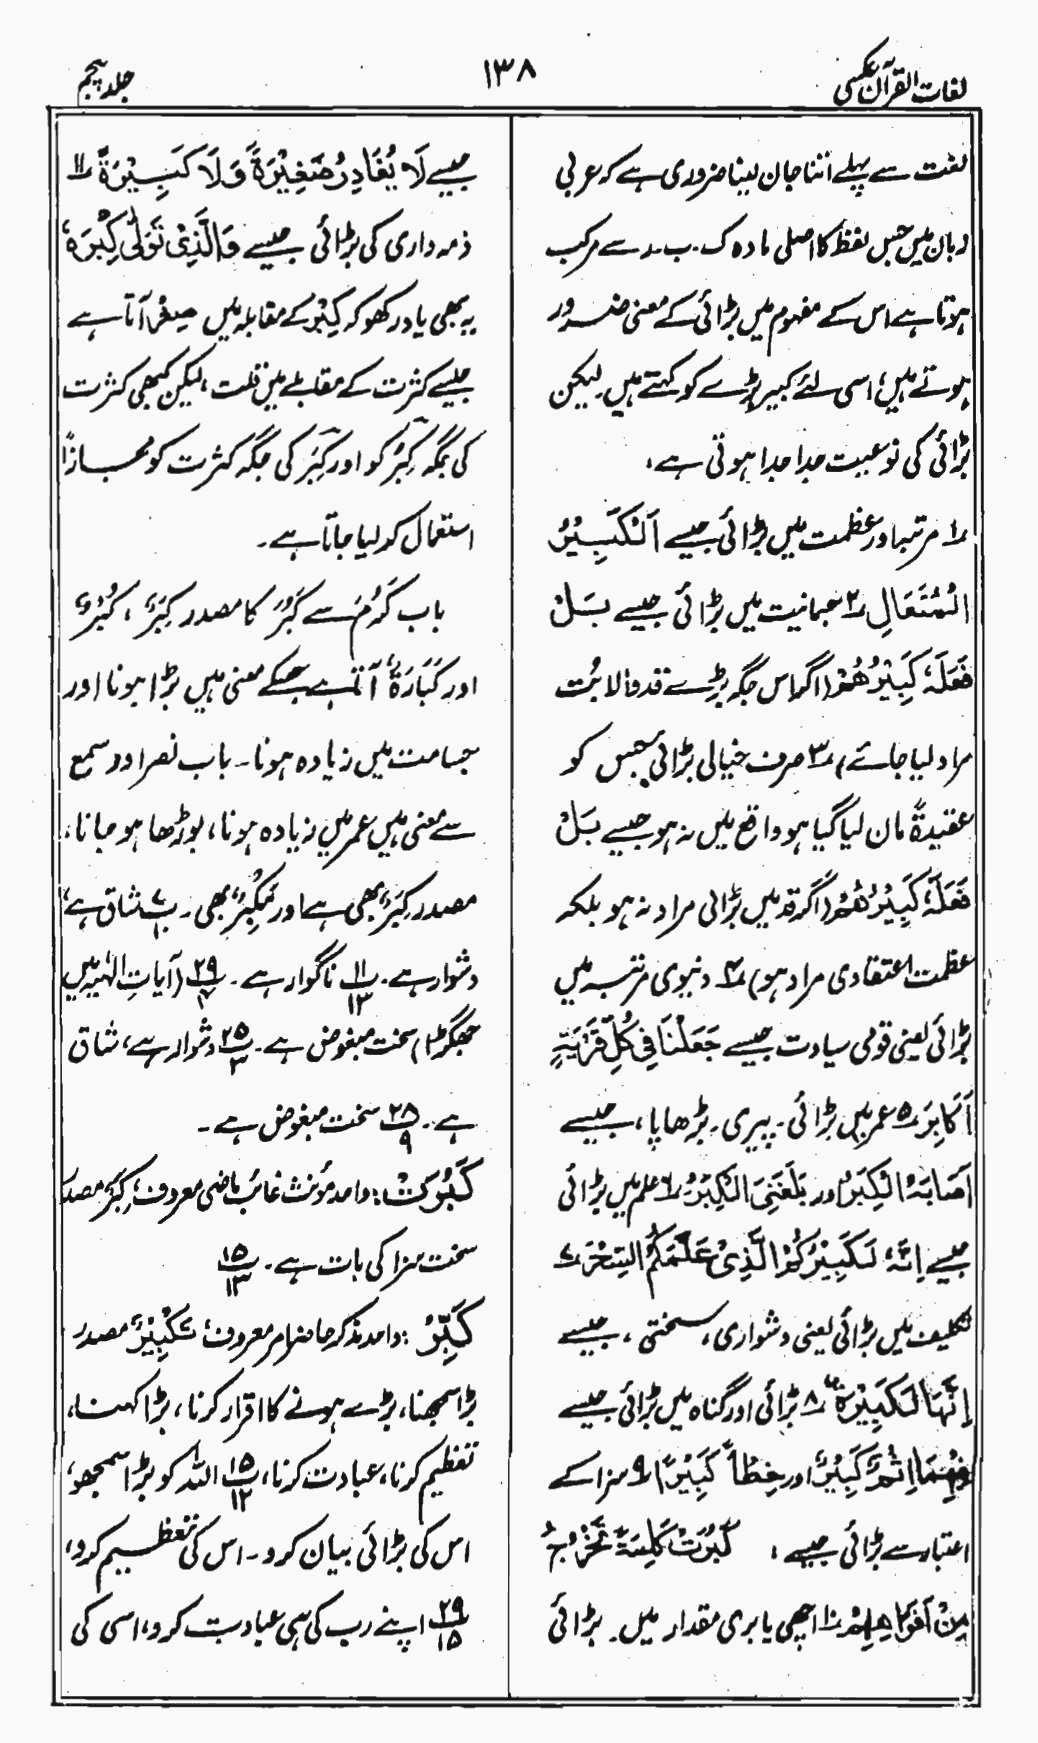 لغات القرآن عکسی
۱۳۸
جلد پنجم
لغت سے پہلے اتنا جان لینا ضروری ہے کہ عربی
زبان میں جس لفظ کا اصلی مادہ ک ۔ ب ۔ ر سے مرکب
ہوتا ہے اس کے مفہوم میں بڑائی کے معنی ضرور
ہوتے ہیں، اسی لئے کبیر بڑے کو کہتے ہیں لیکن
بڑائی کی نوعیت جدا جدا ہوتی ہے،
۱؎ مرتبہ اور عظمت میں بڑائی جیسے اَلْكَبِیْرُ
الْمُتَعَالِ ۲؎ جسمانیت میں بڑائی جیسے بَلْ
فَعَلَهٗ كَبِیْرُهُمْ (اگر اس جگہ بڑے قد والا بُت
مراد لیا جائے) ۳؎ صرف خیالی بڑائی جس کو
عقیدۃً مان لیا گیا ہو واقع میں نہ ہو جیسے بَلْ
فَعَلَهٗ كَبِیْرُهُمْ (اگر قد میں بڑائی مراد نہ ہو بلکہ
عظمت اعتقادی مراد ہو) ۴؎ دنیوی مرتبہ میں
بڑائی یعنی قومی سیادت جیسے جَعَلْنَا فِیْ كُلِّ قَرْیَةٍ
اَكَابِرَ ۵؎ عمر میں بڑائی ۔ پیری ۔ بڑھاپا، جیسے
اَصَابَهُ الْكِبَرُ اور بَلَغَنِیَ الْكِبَرُ ۶؎ علم میں بڑائی
جیسے اِنَّهٗ لَكَبِیْرُكُمُ الَّذِیْ عَلَّمَكُمُ السِّحْرَ ۷؎
تکلیف میں بڑائی یعنی دشواری، سختی، جیسے
اِنَّهَا لَكَبِیْرَةٌ ۸؎ بڑائی اور گناہ میں بڑائی جیسے
فِیْهِمَا اِثْمٌ كَبِیْرٌ اور خِطْأً كَبِیْرًا ۹؎ سزا کے
اعتبار سے بڑائی جیسے، كَبُرَتْ كَلِمَةً تَخْرُجُ
مِنْ اَفْوَاهِهِمْ ۱۰؎ اچھی یا بری مقدار میں ۔ بڑائی
جیسے لَا یُغَادِرُ صَغِیْرَةً وَّلَا كَبِیْرَةً ۱۱؎
ذمہ داری کی بڑائی جیسے وَالَّذِیْ تَوَلّٰی كِبْرَهٗ،
یہ بھی یاد رکھو کہ کِبَر کے مقابلہ میں صِغَر آتا ہے
جیسے کثرت کے مقابلے میں قلت، لیکن کبھی کثرت
کی جگہ کِبَر کو اور کِبَر کی جگہ کثرت کو مجازًا
استعمال کر لیا جاتا ہے۔
باب كَرُمَ سے كَبُرَ کا مصدر كِبَرٌ، كُبْرٌ
اور كَبَارَةٌ آتا ہے جسکے معنی ہیں بڑا ہونا اور
جسامت میں زیادہ ہونا ۔ باب نصر اور سمع
سے معنی ہیں عمر میں زیادہ ہونا، بوڑھا ہو جانا،
مصدر كِبَرٌ بھی ہے اور مَكْبِرٌ بھی ۔ شاق ہے،
دشوار ہے ۔ ۱۱/۱۳ ناگوار ہے ۔ ۲۹/۷ (آیاتِ الٰہیہ میں
جھگڑا) سخت مبغوض ہے ۔ ۲۵/۳ دشوار ہے، شاق
ہے ۔ ۲۸/۹ سخت مبغوض ہے ۔
كَبُرَتْ: واحد مؤنث غائب ماضی معروف، كِبَرٌ مصدر
سخت سزا کی بات ہے ۔ ۱۵/۱۳
كَبِّرْ: واحد مذکر حاضر امر معروف، تَكْبِیْرٌ مصدر
بڑا سمجھنا، بڑے ہونے کا اقرار کرنا، بڑا کہنا،
تعظیم کرنا، عبادت کرنا، ۱۵/۱۲ اللہ کو بڑا سمجھو،
اس کی بڑائی بیان کرو ۔ اس کی تعظیم کرو،
۲۹/۱۵ اپنے رب کی ہی عبادت کرو، اسی کی